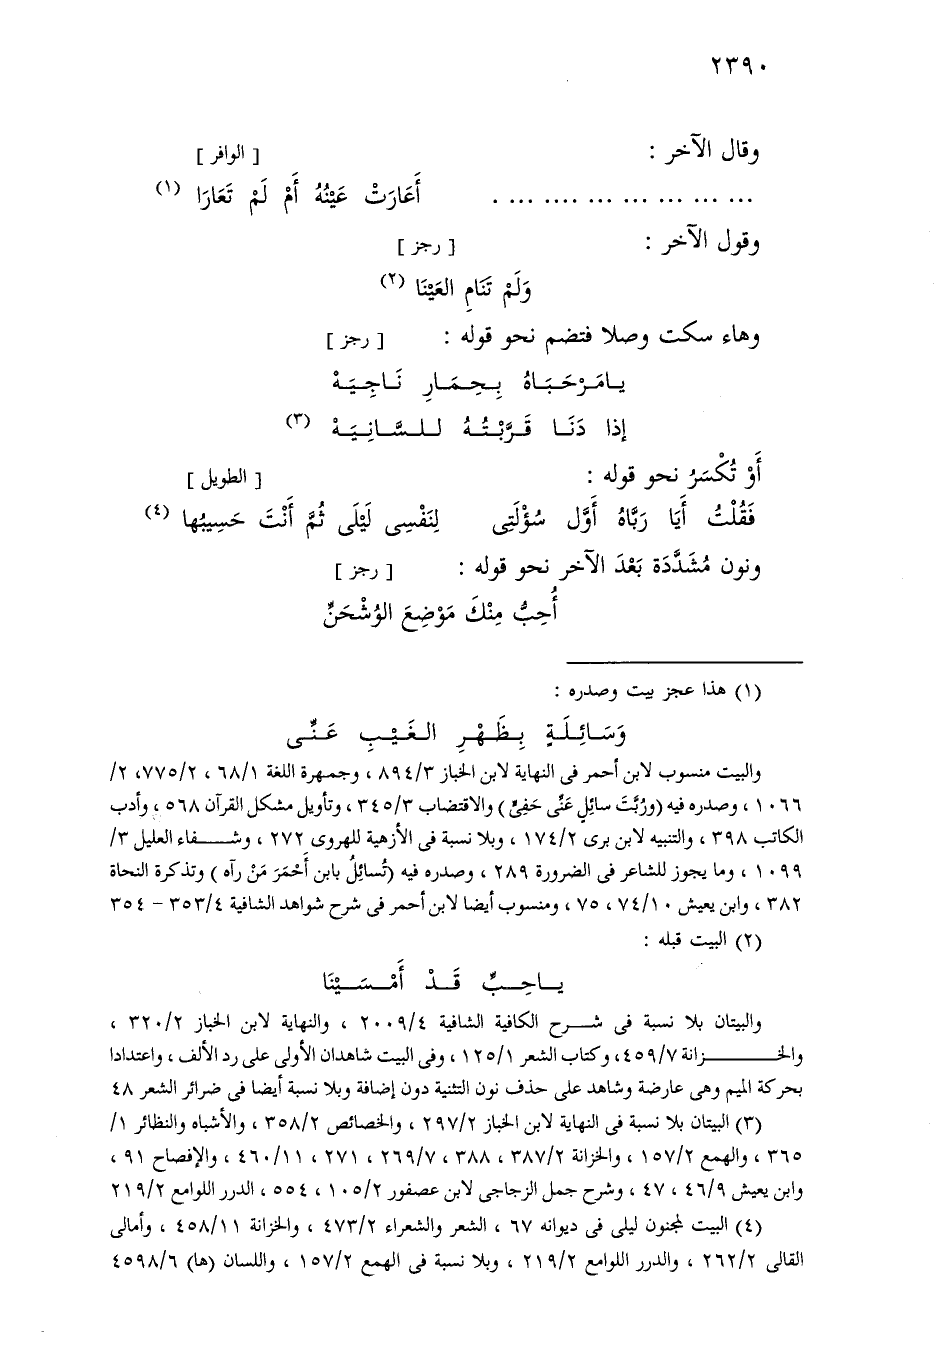 ٢٣٩٠
وقال الآخر : [ الوافر ]
... ... ... ... ... .... ... . أَعَارَتْ عَيْنُهُ أَمْ لَمْ تَعَارَا (١)
وقول الآخر : [ رجز ]
وَلَمْ تَنَامِ العَيْنَا (٢)
وهاء سكت وصلا فتضم نحو قوله : [ رجز ]
يـامَـرْحَـبَـاهُ بِـحِـمَـارِ نَـاجِـيَـهْ
إذا دَنَـا قَـرَّبْـتُـهُ لـلـسَّـانِـيَـهْ (٣)
أَوْ تُكْسَرُ نحو قوله : [ الطويل ]
فَقُلْتُ أَيَا رَبَّاهُ أَوَّل سُؤْلَتِى لِنَفْسِى لَيْلَى ثُمَّ أَنْتَ حَسِيبُها (٤)
ونون مُشَدَّدَة بَعْدَ الآخر نحو قوله : [ رجز ]
أُحِبُّ مِنْكَ مَوْضِعَ الوُشْحَنِّ
(١) هذا عجز بيت وصدره :
وَسَـائِـلَـةٍ بِـظَـهْـرِ الـغَـيْـبِ عَـنِّـى
والبيت منسوب لابن أحمر فى النهاية لابن الخباز ٨٩٤/٣ ، وجمهرة اللغة ٦٨/١ ، ٧٧٥/٢، ٢/
١٠٦٦ ، وصدره فيه (ورُبَّتَ سائِلٍ عَنِّى حَفِىِّ) والاقتضاب ٣٤٥/٣ ، وتأويل مشكل القرآن ٥٦٨ ، وأدب
الكاتب ٣٩٨ ، والتنبيه لابن برى ١٧٤/٢ ، وبلا نسبة فى الأزهية للهروى ٢٧٢ ، وشـــفاء العليل ٣/
١٠٩٩ ، وما يجوز للشاعر فى الضرورة ٢٨٩ ، وصدره فيه (تُسائِلُ بابن أَحْمَرَ مَنْ رآه ) وتذكرة النحاة
٣٨٢ ، وابن يعيش ٧٤/١٠ ، ٧٥ ، ومنسوب أيضا لابن أحمر فى شرح شواهد الشافية ٣٥٣/٤ – ٣٥٤
(٢) البيت قبله :
يـاحِـبِّ قَـدْ أَمْـسَـيْـنَا
والبيتان بلا نسبة فى شـرح الكافية الشافية ٢٠٠٩/٤ ، والنهاية لابن الخباز ٣٢٠/٢ ،
والخـــزانة ٤٥٩/٧، وكتاب الشعر ١٢٥/١ ، وفى البيت شاهدان الأولى على رد الألف ، واعتدادا
بحركة الميم وهى عارضة وشاهد على حذف نون التثنية دون إضافة وبلا نسبة أيضا فى ضرائر الشعر ٤٨
(٣) البيتان بلا نسبة فى النهاية لابن الخباز ٢٩٧/٢ ، والخصائص ٣٥٨/٢ ، والأشباه والنظائر ١/
٣٦٥ ، والهمع ١٥٧/٢ ، والخزانة ٣٨٧/٢ ، ٣٨٨ ، ٢٦٩/٧ ، ٢٧١ ، ٤٦٠/١١ ، والإفصاح ٩١ ،
وابن يعيش ٤٦/٩ ، ٤٧ ، وشرح جمل الزجاجى لابن عصفور ١٠٥/٢ ، ٥٥٤ ، الدرر اللوامع ٢١٩/٢
(٤) البيت لمجنون ليلى فى ديوانه ٦٧ ، الشعر والشعراء ٤٧٣/٢ ، والخزانة ٤٥٨/١١ ، وأمالى
القالى ٢٦٢/٢ ، والدرر اللوامع ٢١٩/٢ ، وبلا نسبة فى الهمع ١٥٧/٢ ، واللسان (ها) ٤٥٩٨/٦